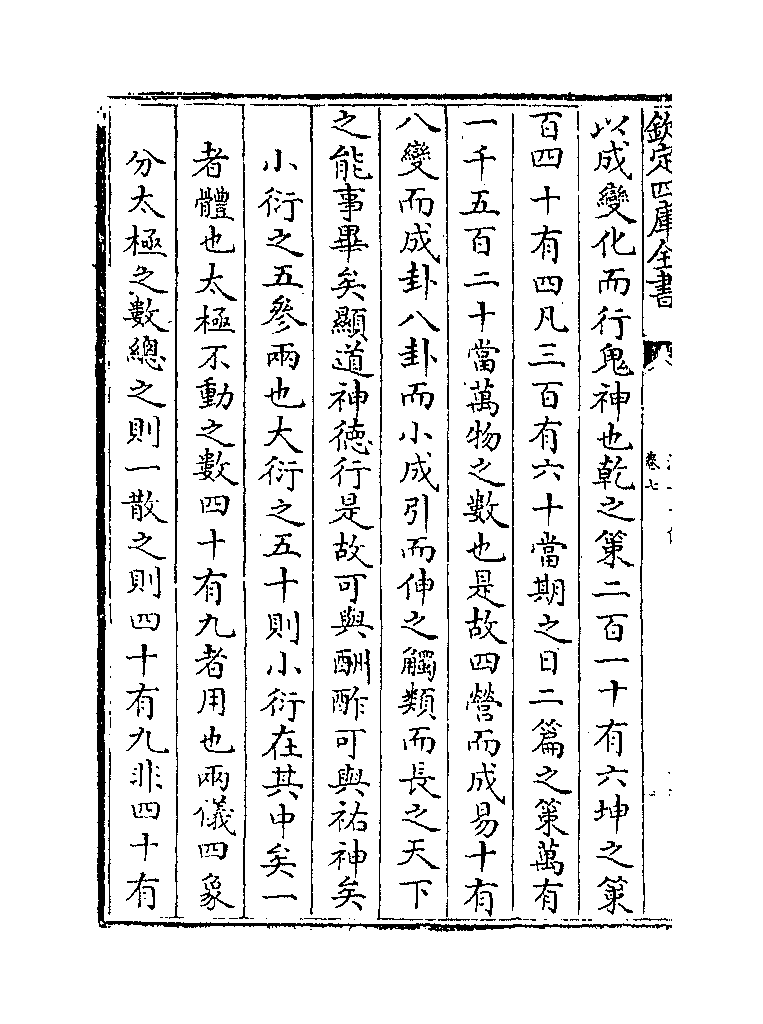 欽定四庫全書
卷七
以成變化而行鬼神也乾之策二百一十有六坤之策
百四十有四凡三百有六十當期之日二篇之策萬有
一千五百二十當萬物之數也是故四營而成易十有
八變而成卦八卦而小成引而伸之觸類而長之天下
之能事畢矣顯道神德行是故可與酬酢可與祐神矣
小衍之五參兩也大衍之五十則小衍在其中矣一
者體也太極不動之數四十有九者用也兩儀四象
分太極之數總之則一散之則四十有九非四十有